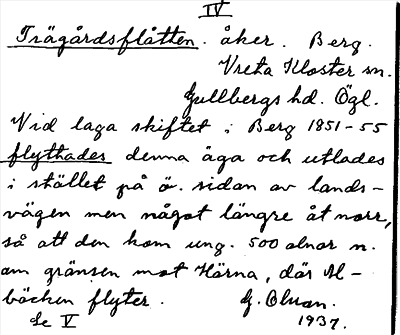 IV
Trägårdsflåtten. åker. Berg.
Vreta Kloster sn.
Gullbergs hd. Ögl.
Vid laga skiftet i Berg 1851-55
flyttades denna äga och utlades
i stället på ö. sidan av lands-
vägen men något längre åt norr,
så att den kom ung. 500 alnar n.
om gränsen mot Härna, där Al-
bäcken flyter.
Se V
1937.